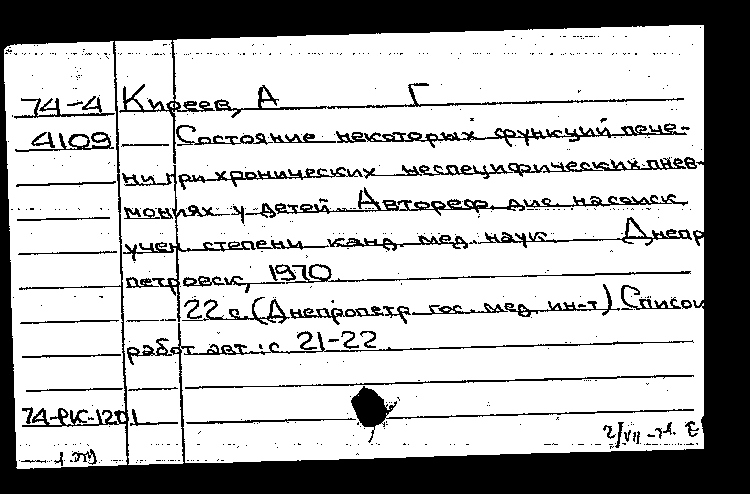 74-4 Киреев, А Г
4109 Состояние некоторых функций пече-
ни при хронических неспецифических пнев-
мониях у детей. Автореф. дис. на соиск.
учен. степени канд. мед. наук. Днепр
петровск, 1970.
22 с. (Днепропетр. гос. мед. ин-т) Список
работ авт.: с. 21-22.
74-РК-1201.
2/VII-74.